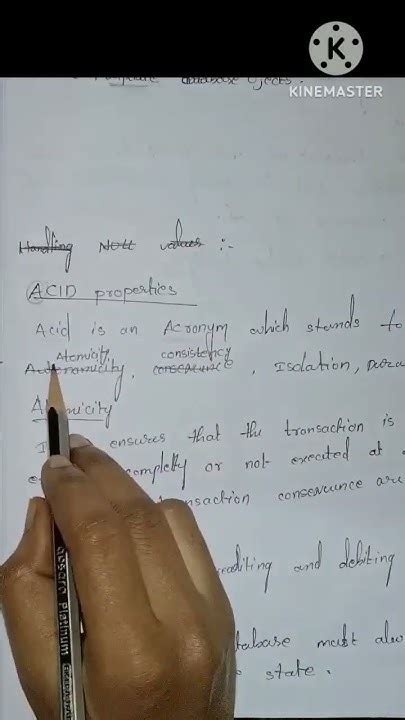 KINEMASTER
database
Handling NULL values :-
ACID properties
Acid is an Acronym which stands fo
Atomicity, consistency
, Isolation, Dura
ensures that the transaction is
completly or not executed at a
nsaction consecuence are
editing and debiting
tabase must also
state.
aosara Platinum